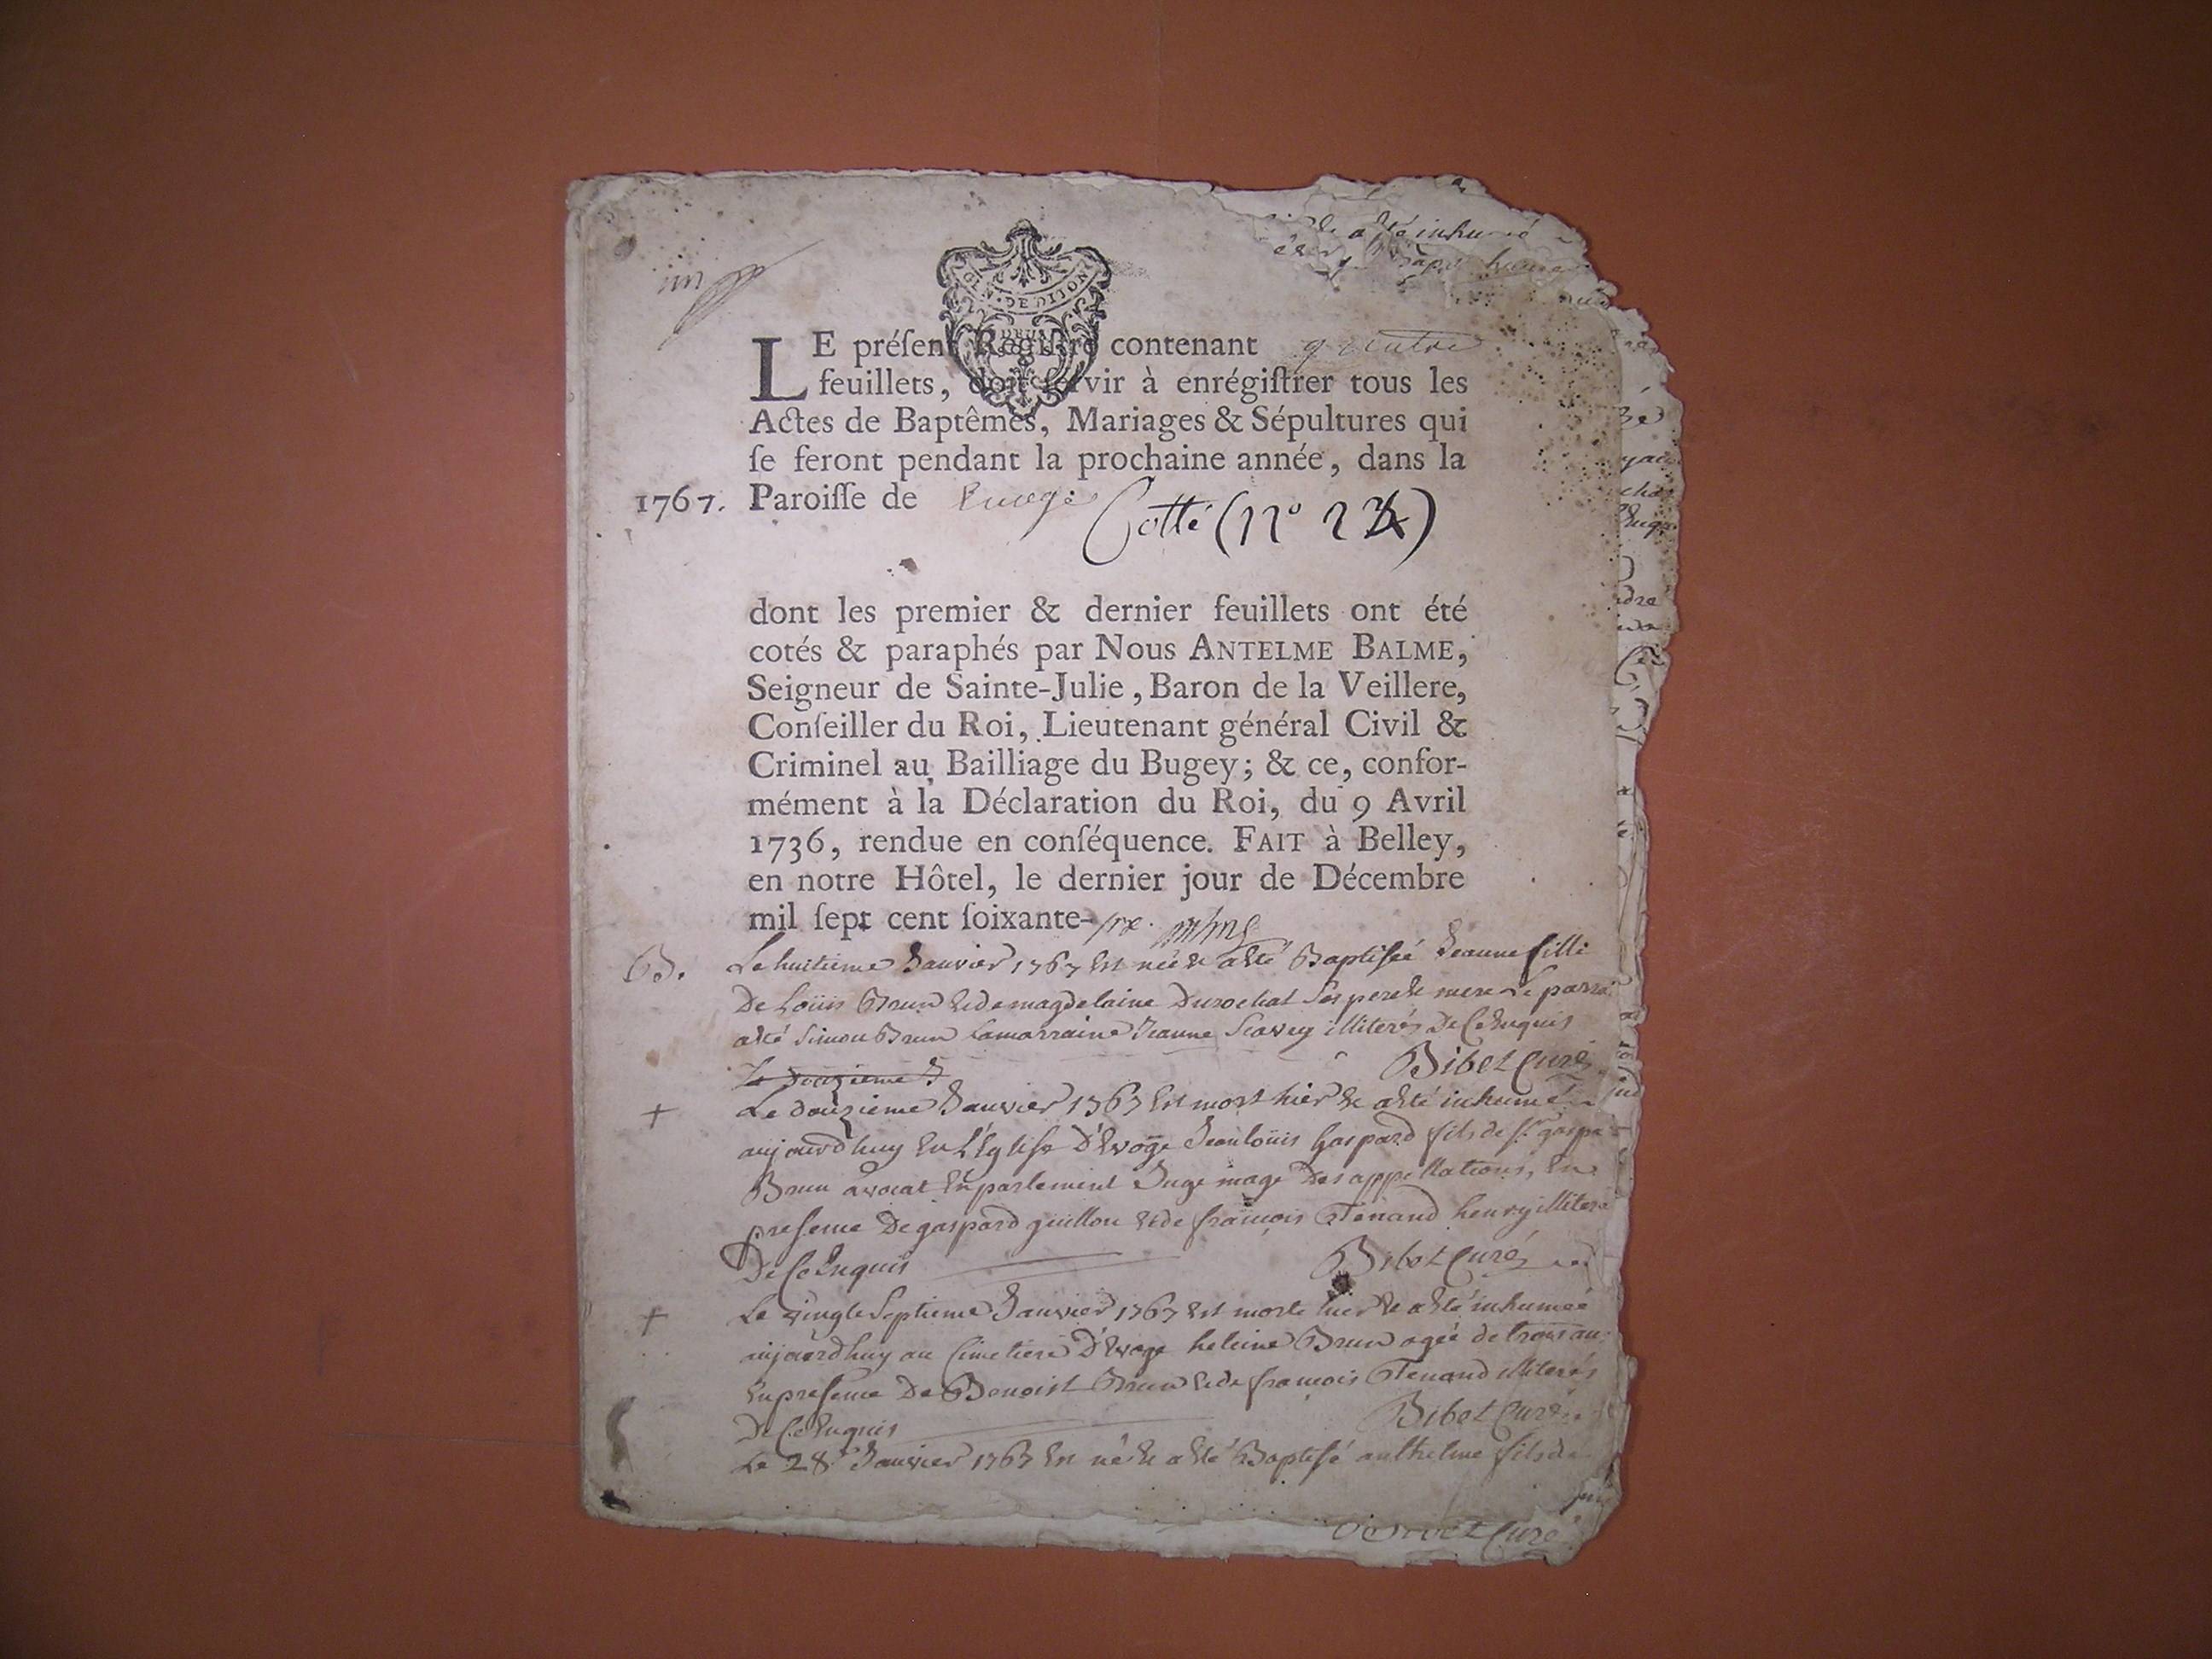 GEN · DE DIJON
DEUX
LE préſent Regiſtre contenant quatre
feuillets, doit ſervir à enrégiſtrer tous les
Actes de Baptêmes, Mariages & Sépultures qui
ſe feront pendant la prochaine année, dans la
1767. Paroiſſe de Evoge
Cotté (N° 24)
dont les premier & dernier feuillets ont été
cotés & paraphés par Nous ANTELME BALME,
Seigneur de Sainte-Julie, Baron de la Veillere,
Conſeiller du Roi, Lieutenant général Civil &
Criminel au Bailliage du Bugey; & ce, confor-
mément à la Déclaration du Roi, du 9 Avril
1736, rendue en conſéquence. FAIT à Belley,
en notre Hôtel, le dernier jour de Décembre
mil ſept cent ſoixante-six.
B. Le huitieme Janvier 1767 est née & a été Baptisée Jeanne fille
De Loüis Brun & de magdelaine Durochat ses pere & mere Le parrai
a été Simon Brun la marraine Jeanne Scavey illiterés De Ce Enquis
Bibet Curé
Le douzieme J
+ Le douzieme Janvier 1767 est mort hier & a été inhumé
aujourdhuy En L'Eglise D'Evoge Jean loüis gaspard fils de sr gaspa
Brun avocat En parlement Juge mage Des appellations, En
presence De gaspard guillon & de françois Tenand henry illiteré
De Ce Enquis Bibet Curé
+ Le vingt Septieme Janvier 1767 est morte hier & a été inhumeé
aujourdhuy au Cimetiere D'Evoge heleine Brun ageé de trois an
En presence De Benoist Brun & de françois Tenand illiterés
De Ce Enquis Bibet Curé
Le 28e Janvier 1767 est né & a été Baptisé anthelme fils de
a été inhumé
Curé